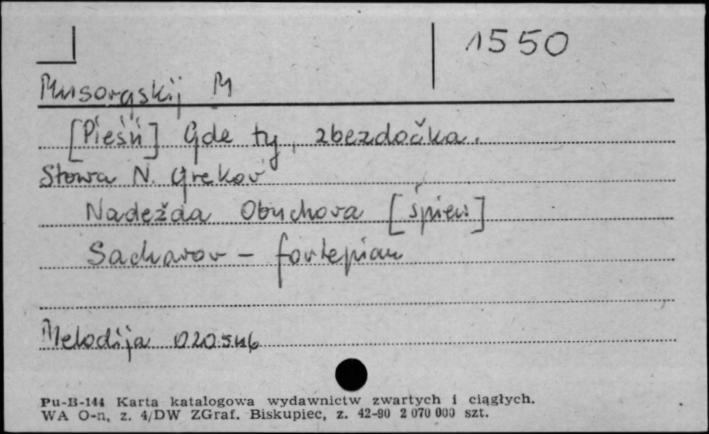 1550
Musorgskij M
[Pieśń] Gde ty, zbezdočka.
Słowa N. Grekov
Nadežda Obuchova [śpiew]
Sacharov - fortepian
Melodija 020546
Pu-B-144 Karta katalogowa wydawnictw zwartych i ciągłych.
WA O-n, z. 4/DW ZGraf. Biskupiec, z. 42-90 2 070 000 szt.